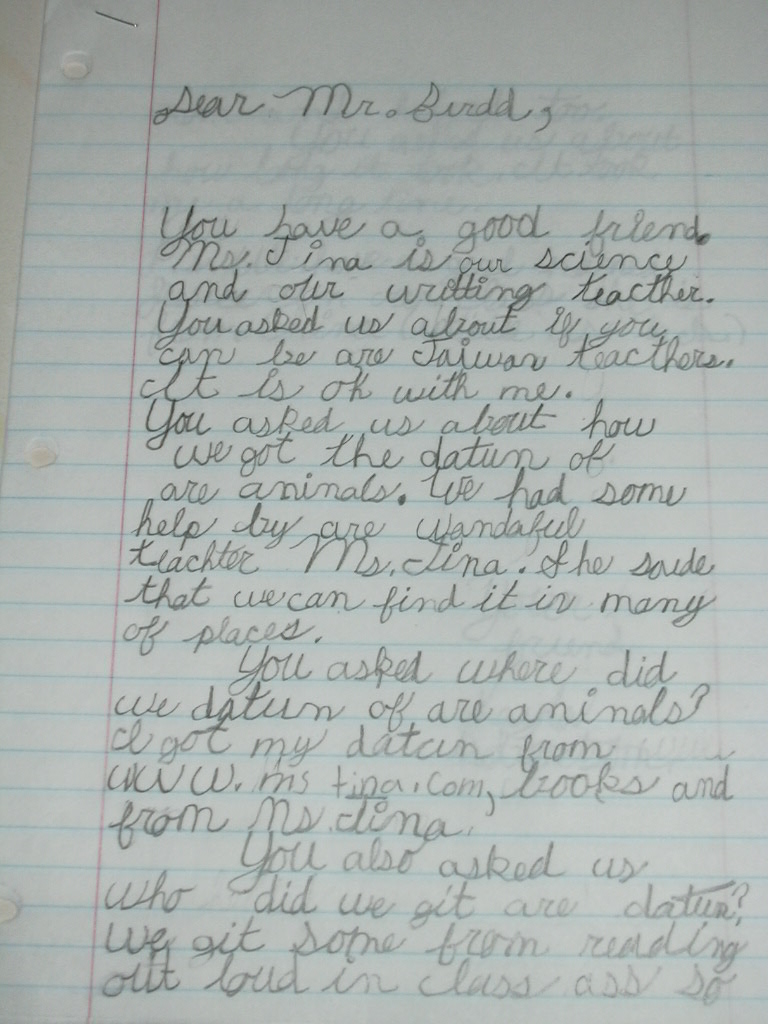 Dear Mr. Burdd,
You have a good friend.
Ms. Tina is our science
and our writting teacther.
You asked us about if you
can be are Taiwan teacthers.
It is ok with me.
You asked us about how
we got the datun of
are aninals. We had some
help by are wandaful
teachter Ms. Tina. She saide
that we can find it in many
of places.
You asked where did
we datun of are aninals?
I got my datun from
www.ms tina.com, books and
from Ms. Tina.
You also asked us
who did we git are datun?
We git some from reading
out loud in class ass so